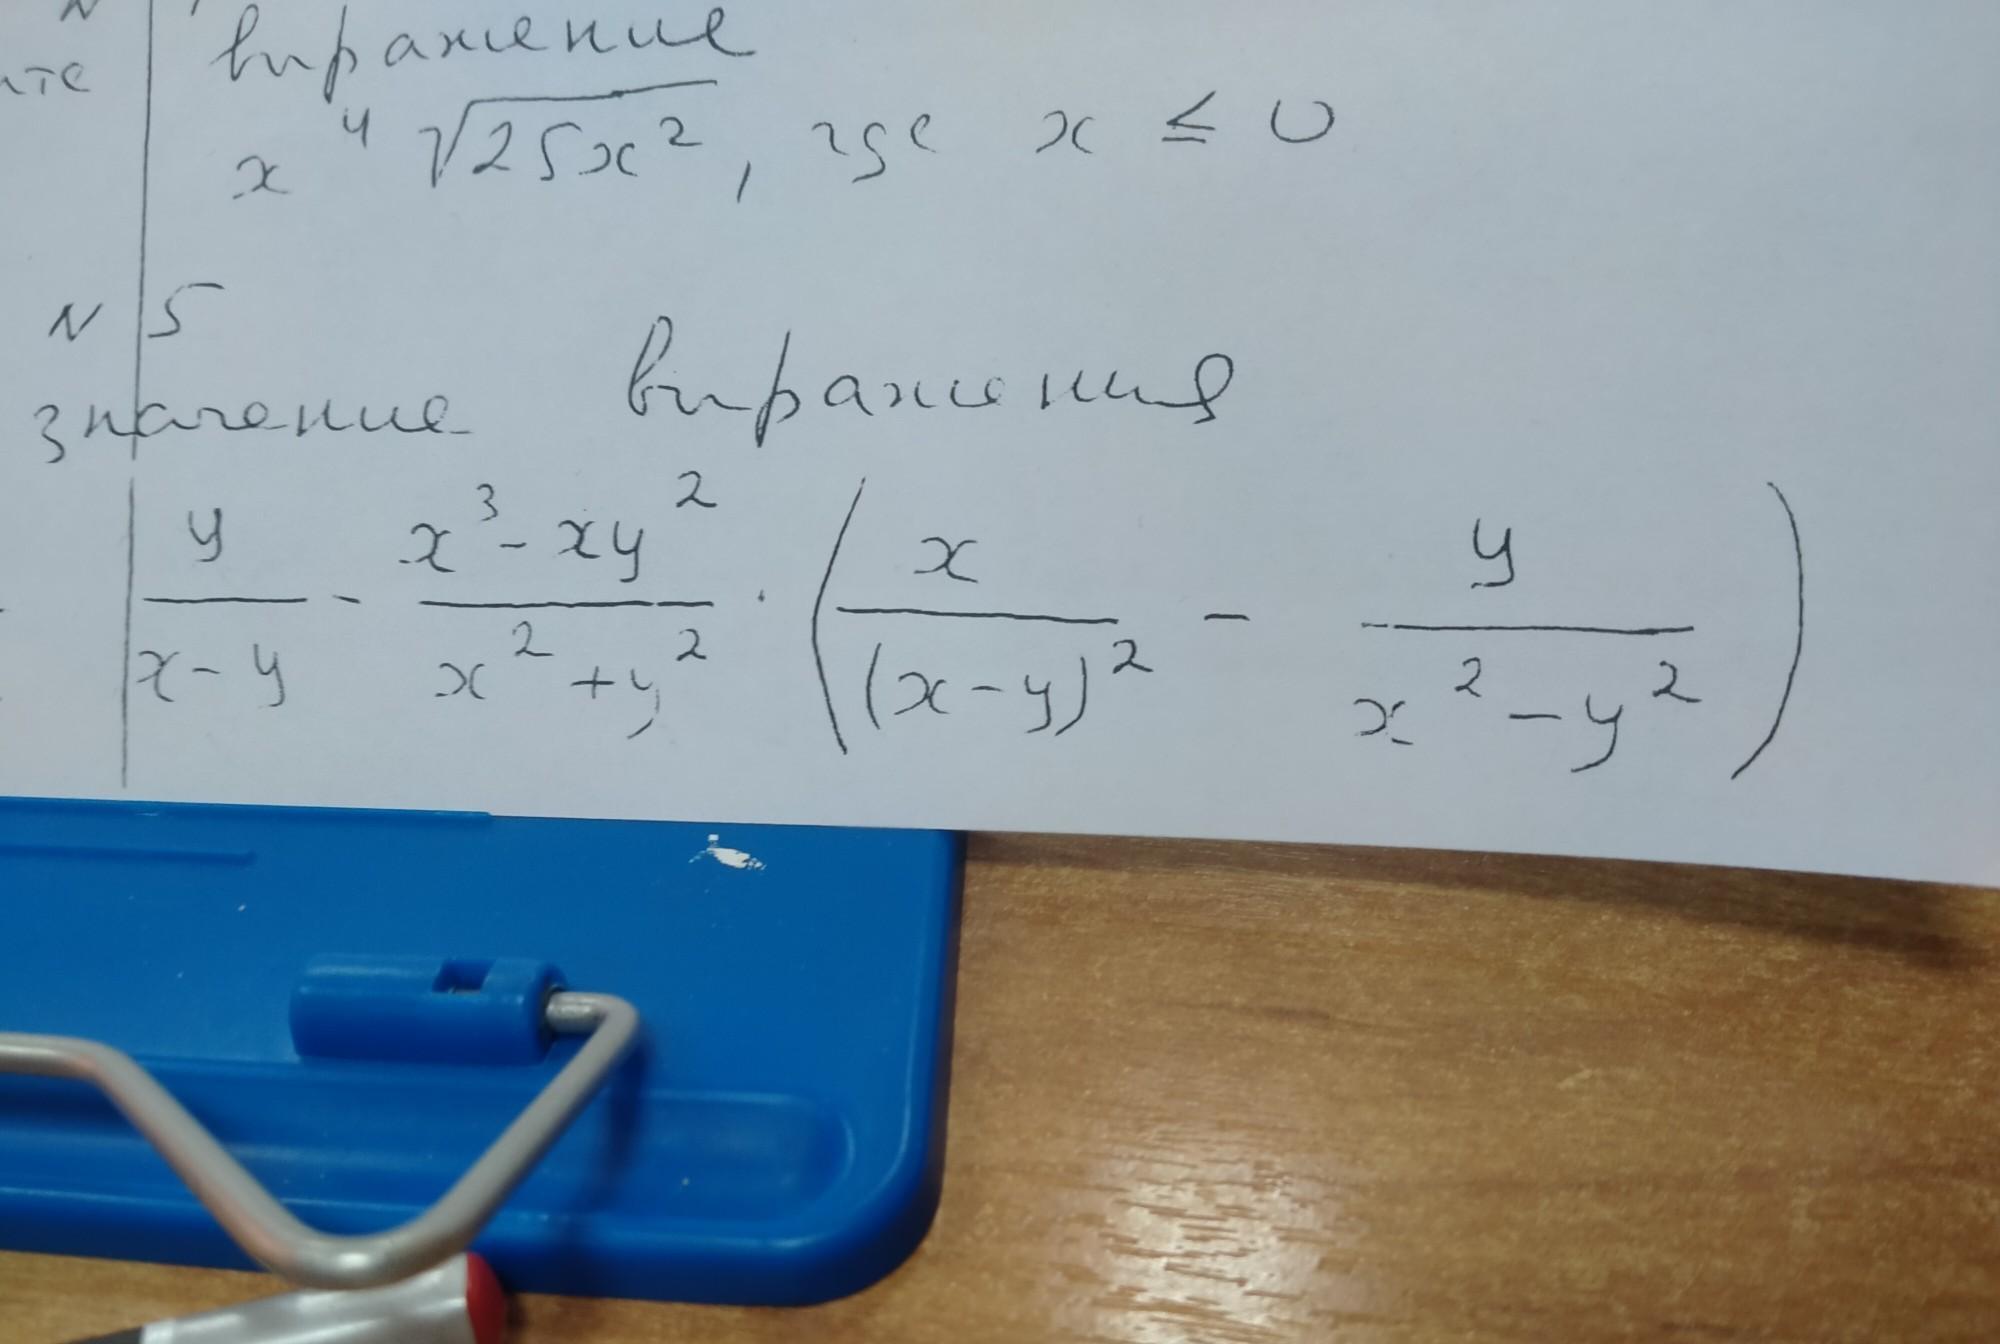 N
выражение
x ⁴√25x², где x ≤ 0
N 5
значение выражения
y/(x-y) - (x³-xy²)/(x²+y²) · (x/(x-y)² - y/(x²-y²))